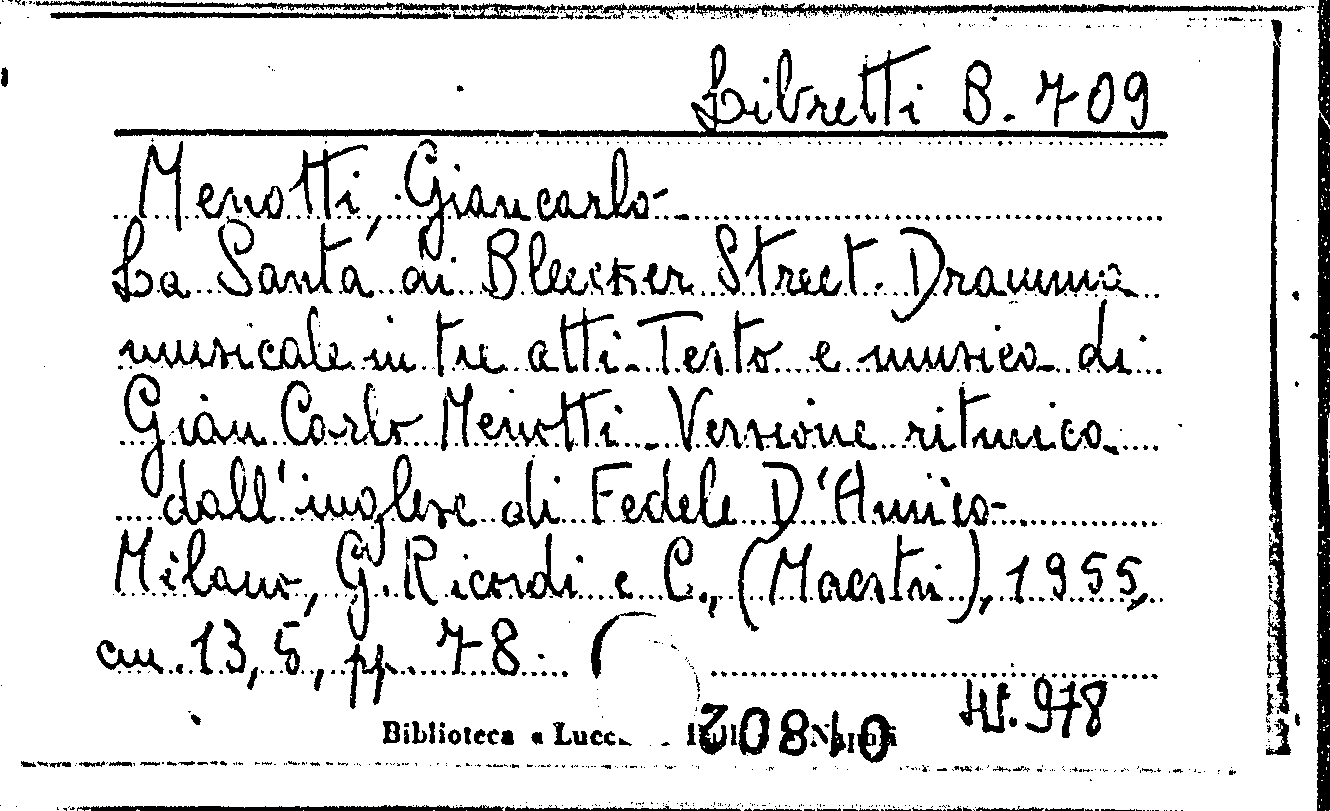 Libretti B. 709
Menotti, Giancarlo
La Santa di Bleecker Street. Dramma
musicale in tre atti. Testo e musica di
Gian Carlo Menotti. Versione ritmica
dall'inglese di Fedele D'Amico
Milano, G. Ricordi e C., (Maestri), 1955,
cm. 13,5, pp. 78.
978
Biblioteca